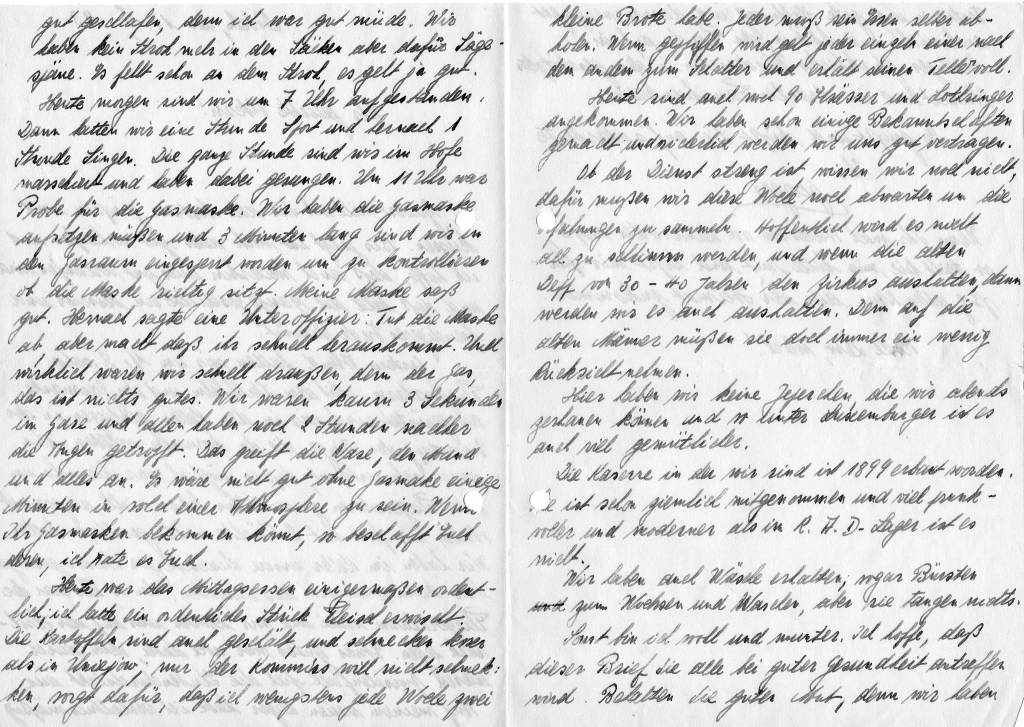 gut geschlafen, denn ich war gut müde. Wir
haben kein Stroh mehr in den Säcken aber dafür Säge-
späne. Es fehlt schon an dem Stroh, es geht ja gut.
Heute morgen sind wir um 7 Uhr aufgestanden.
Dann hatten wir eine Stunde Sport und hernach 1
Stunde Singen. Die ganze Stunde sind wir im Hofe
marschiert und haben dabei gesungen. Um 11 Uhr war
Probe für die Gasmaske. Wir haben die Gasmaske
aufsetzen müßen und 3 Minuten lang sind wir in
den Gasraum eingesperrt worden um zu kontrollieren
ob die Maske richtig sitzt. Meine Maske saß
gut. Hernach sagte eine Unteroffizier: Tut die Maske
ab aber macht daß ihr schnell herauskommt. Und
wirklich waren wir schnell draußen, denn der Gas,
das ist nichts gutes. Wir waren kaum 3 Sekunden
im Gase und allen haben noch 2 Stunden nachher
die Augen getropft. Das greift die Nase, den Mund
und alles an. Es wäre nicht gut ohne Gasmake einige
Minuten in solch einer Atmosphere zu sein. Wenn
Ihr Gasmasken bekommen könnt, so beschafft Euch
deren, ich rate es Euch.
Heute war das Mittagsessen einigermaßen ordent-
lich, ich hatte ein ordentliches Stück Fleisch erwischt.
Die Kartoffeln sind auch geschält, und schmecken besser
als in Uniejów, nur der Kommiss will nicht schmek-
ken, sorgt dafür, daß ich wenigstens jede Woche zwei
kleine Brote habe. Jeder muß sein Essen selber ab-
holen. Wenn gepfiffen wird geht jeder einzeln einer nach
dem andern zum Schalter und erhält seinen Teller voll.
Heute sind auch noch 90 Elsässer und Lothringer
angekommen. Wir haben schon einige Bekanntschaften
gemacht und sicherlich werden wir uns gut vertragen.
Ob der Dienst streng ist wissen wir noch nicht,
dafür mußen wir diese Woche noch abwarten um die
fahrungen zu sammeln. Hoffentlich werd es nicht
all zu schlimm werden, und wenn die alten
Deff von 30-40 Jahren den Zirkus aushalten, dann
werden wir es auch aushalten. Denn auf die
alten Männer müßen sie doch immer ein wenig
Rücksicht nehmen.
Hier haben wir keine, die wir abends
zerhauen können und so unter Luxemburger ist es
auch viel gemütlicher.
Die Kaserne in der wir sind ist 1899 erbaut worden.
Sie ist schon ziemlich mitgenommen und viel prunk-
voller und moderner als im R.A.D-Lager ist es
nicht.
Wir haben auch Wäsche erhalten, sogar Bürsten
zum Wochsen und Waschen, aber sie taugen nichts.
Sonst bin ich woll und munter. Ich hoffe, daß
dieser Brief Sie alle bei guter Gesundheit antreffen
wird. Behalten Sie guten Mut, denn wir haben